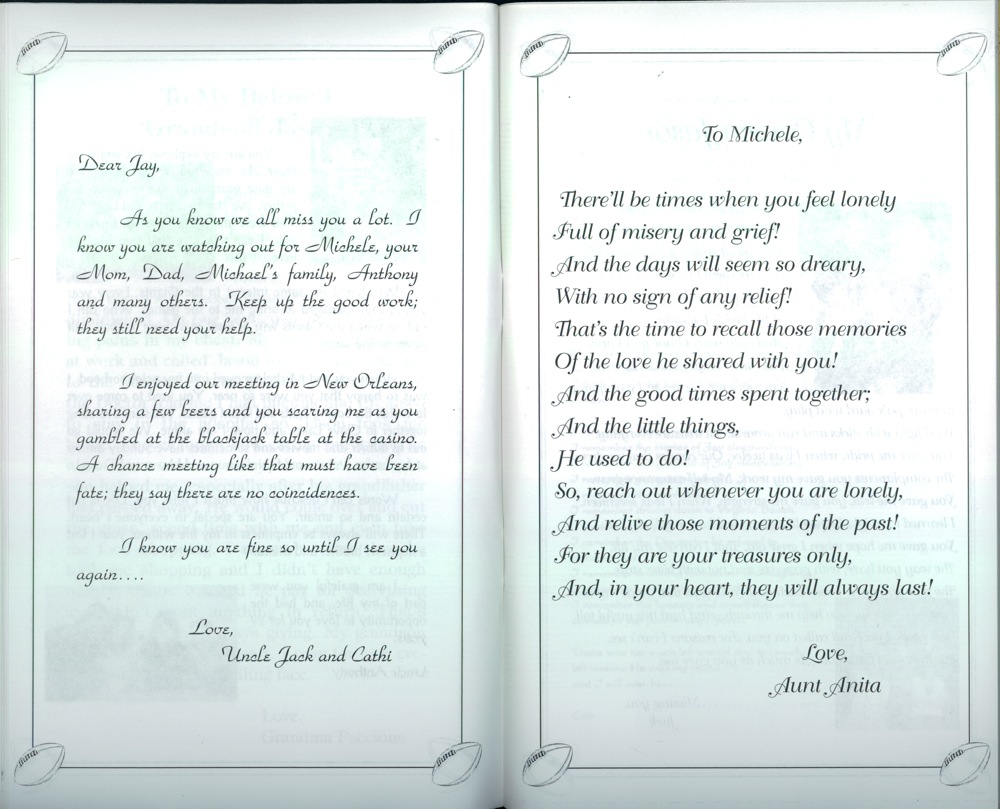 Dear Jay,
As you know we all miss you a lot. I
know you are watching out for Michele, your
Mom, Dad, Michael's family, Anthony
and many others. Keep up the good work;
they still need your help.
I enjoyed our meeting in New Orleans,
sharing a few beers and you scaring me as you
gambled at the blackjack table at the casino.
A chance meeting like that must have been
fate; they say there are no coincidences.
I know you are fine so until I see you
again….
Love,
Uncle Jack and Cathi
To Michele,
There'll be times when you feel lonely
Full of misery and grief!
And the days will seem so dreary,
With no sign of any relief!
That's the time to recall those memories
Of the love he shared with you!
And the good times spent together;
And the little things,
He used to do!
So, reach out whenever you are lonely,
And relive those moments of the past!
For they are your treasures only,
And, in your heart, they will always last!
Love,
Aunt Anita